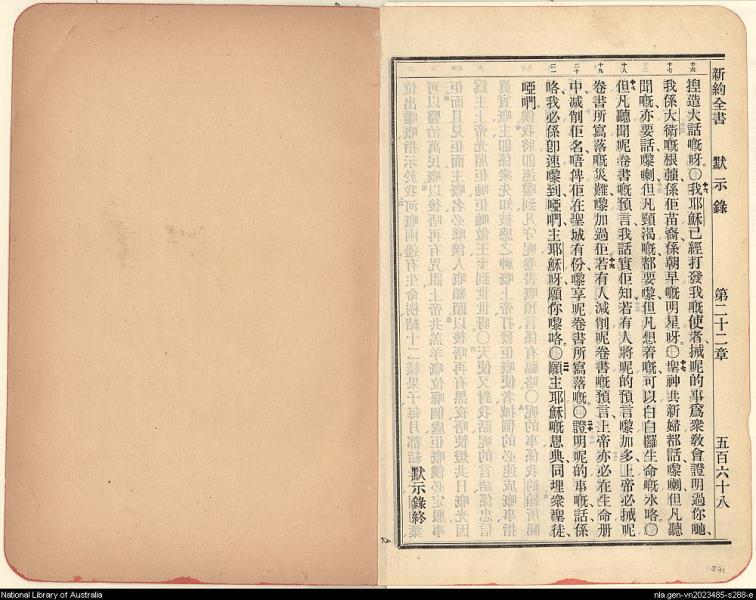 新約全書 默示錄 第二十二章 五百六十八
揑造大話嘅呀。〇我耶穌已經打發我嘅使者、搣呢的事爲衆敎會證明過你哋、
我係大衛嘅根蘖、係佢苗裔、係朝早嘅明星呀。〇聖神共新婦都話嚟喇、但凡聽
聞嘅亦要話嚟喇、但凡頸渴嘅都要嚟、但凡想着嘅可以白白攞生命嘅水咯。〇
但凡聽聞呢卷書嘅預言、我話實佢知、若有人將呢的預言嚟加多、上帝必搣呢
卷書所寫落嘅災難嚟加過佢、若有人減削呢卷書嘅預言、上帝亦必在生命册
中、減削佢名、唔俾佢在聖城有份、嚟享呢卷書所寫落嘅。〇證明呢的事嘅話、係
咯、我必係卽速嚟到、啞㗎、主耶穌呀、願你嚟咯。〇願主耶穌嘅恩典、同埋衆聖徒、
啞㗎。
默示錄終
National Library of Australia
nla.gen-vn2023485-s288-e